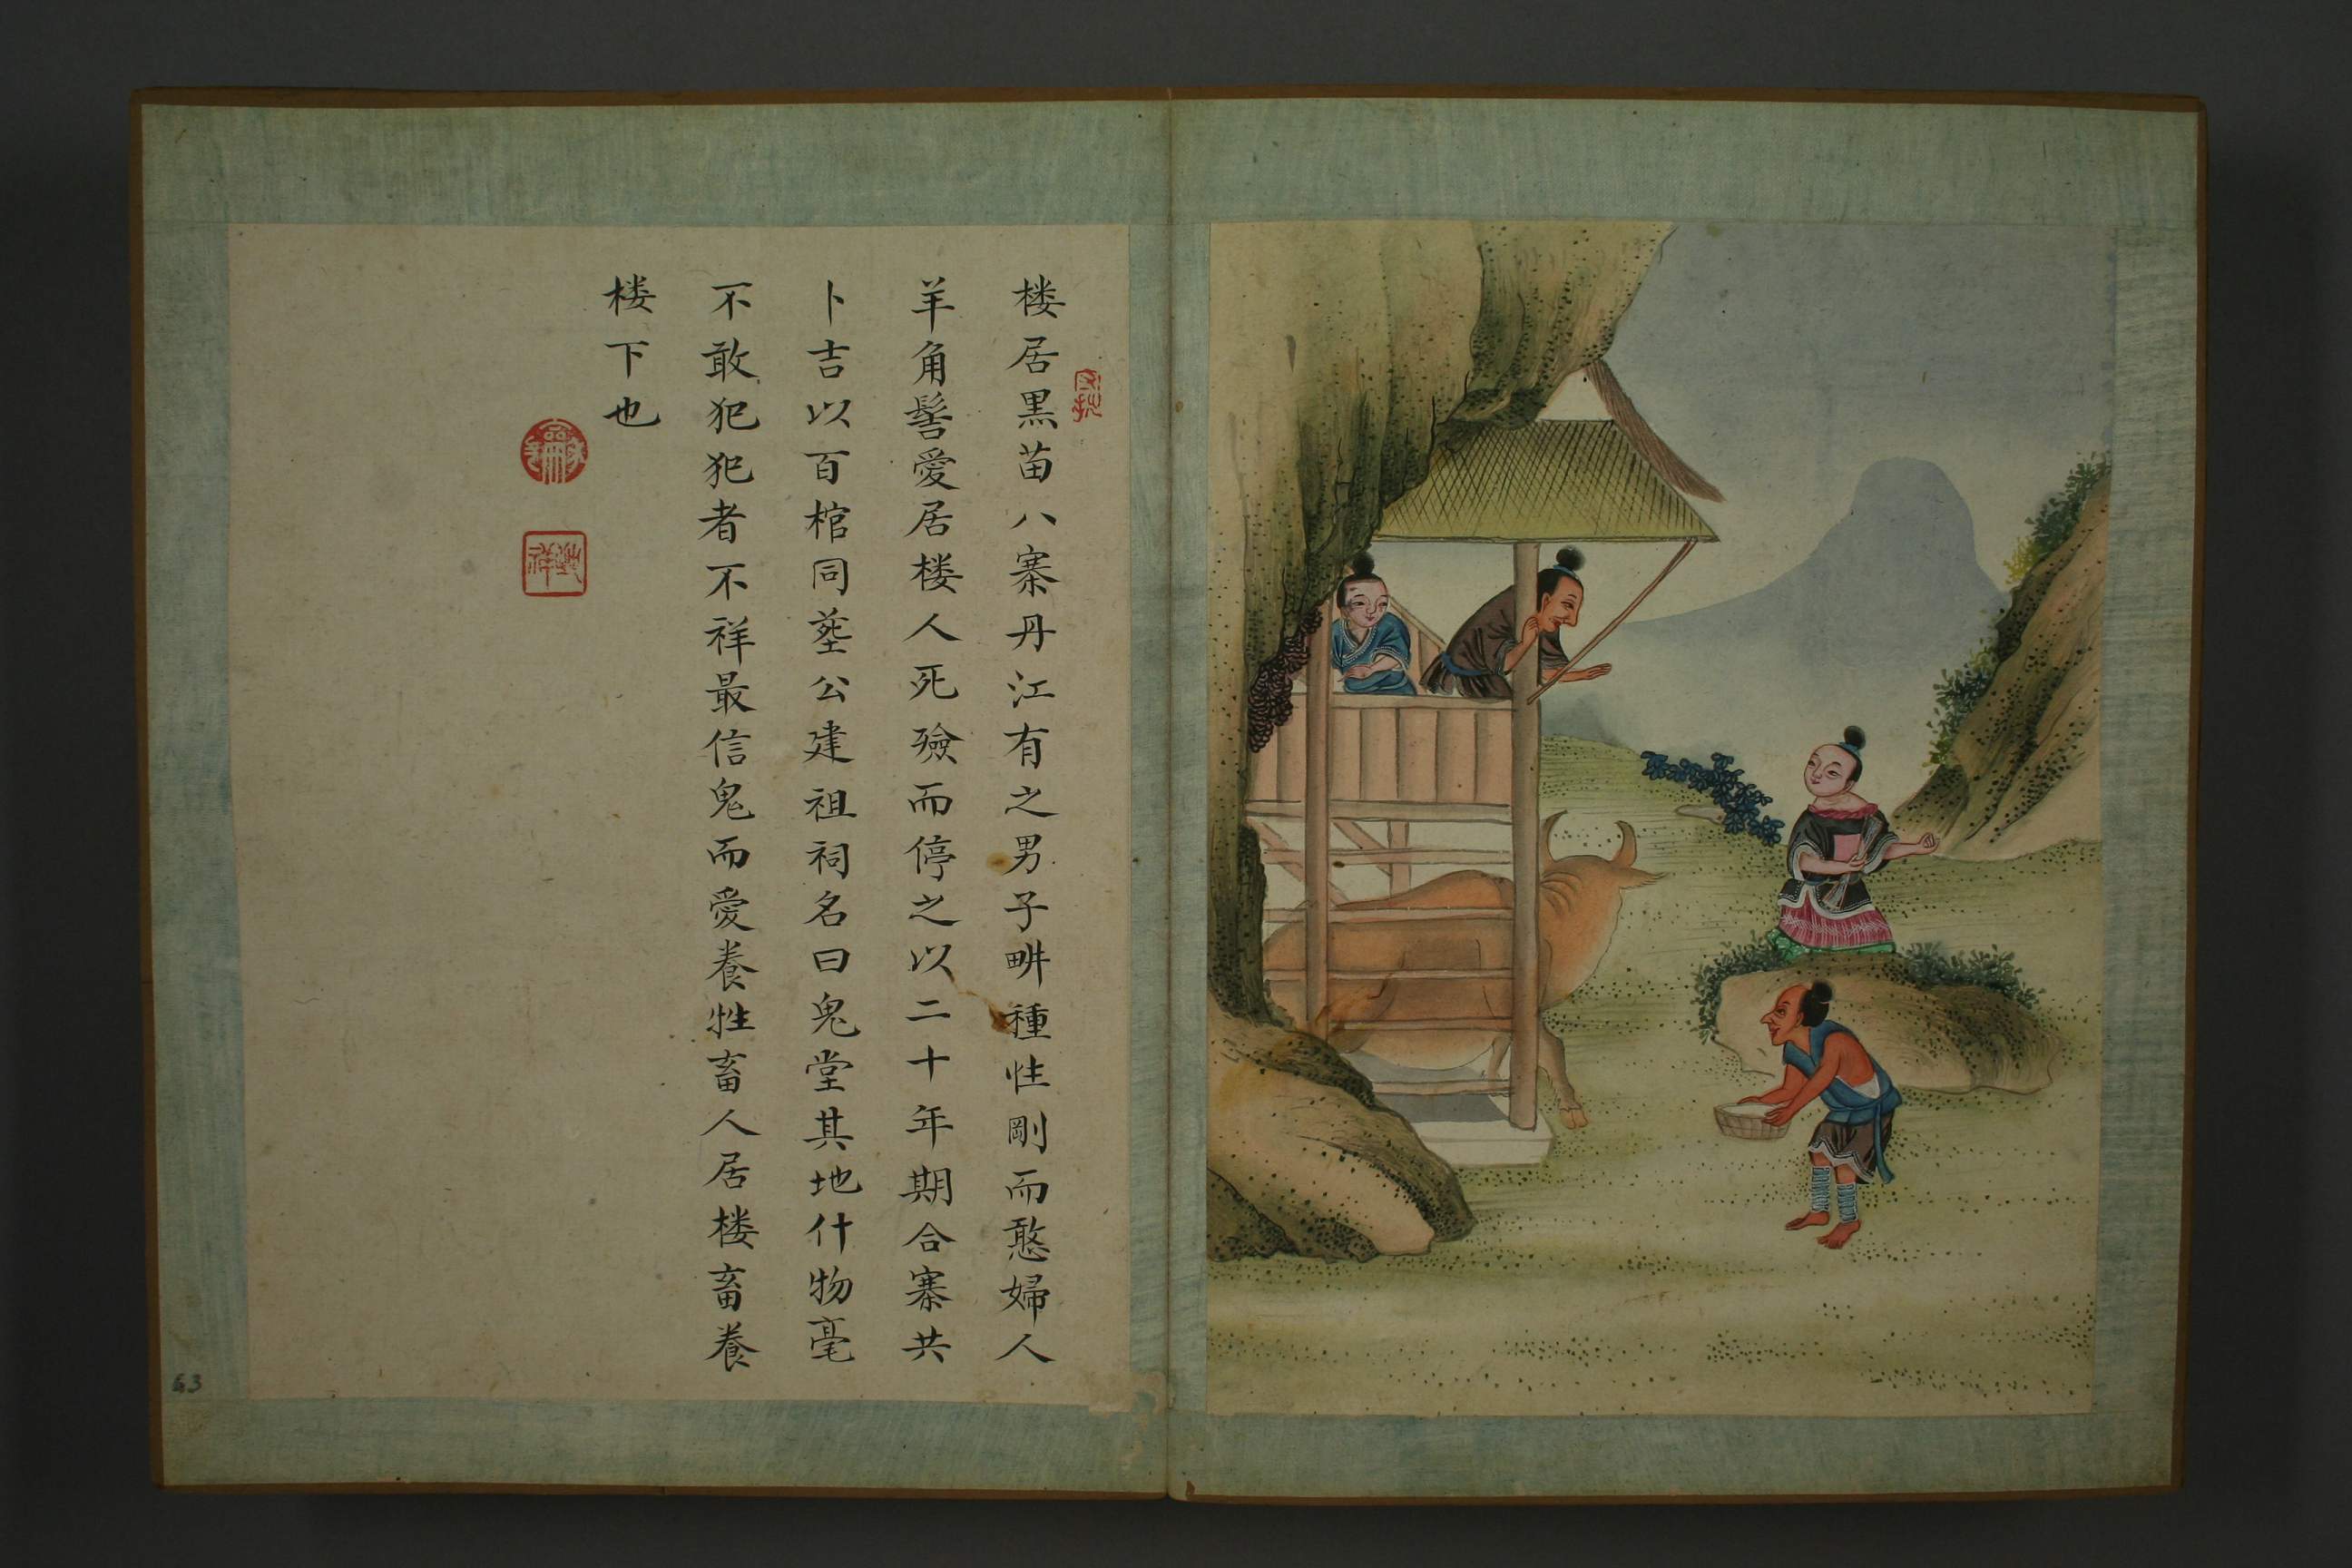 楼居黒苗八寨丹江有之男子畊種性剛而憨婦人
羊角髻愛居楼人死殮而停之以二十年期合寨共
卜吉以百棺同塟公建祖祠名曰鬼堂其地什物毫
不敢犯犯者不祥最信鬼而愛養牲畜人居楼畜養
楼下也
63